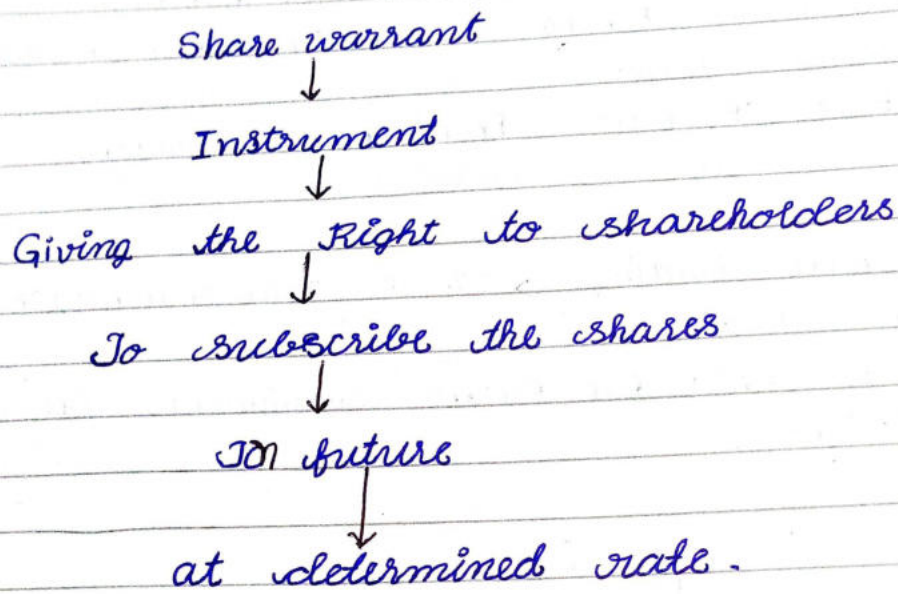 Share warrant
↓
Instrument
↓
Giving the Right to shareholders
↓
To subscribe the shares
↓
In future
↓
at determined rate.